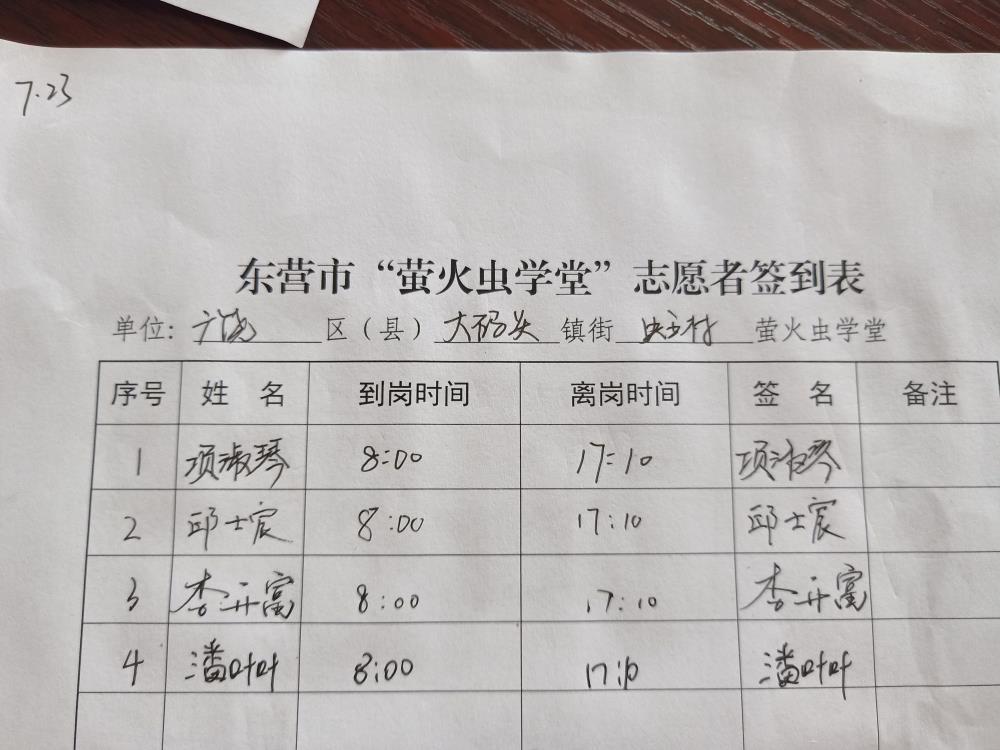 7.23
东营市“萤火虫学堂”志愿者签到表
单位: 广饶 区（县） 大码头 镇街 央主村 萤火虫学堂
序号 姓 名 到岗时间 离岗时间 签 名 备注
1 项淑琴 8:00 17:10 项淑琴
2 邱士宸 8:00 17:10 邱士宸
3 李开富 8:00 17:10 李开富
4 潘叶叶 8:00 17:10 潘叶叶